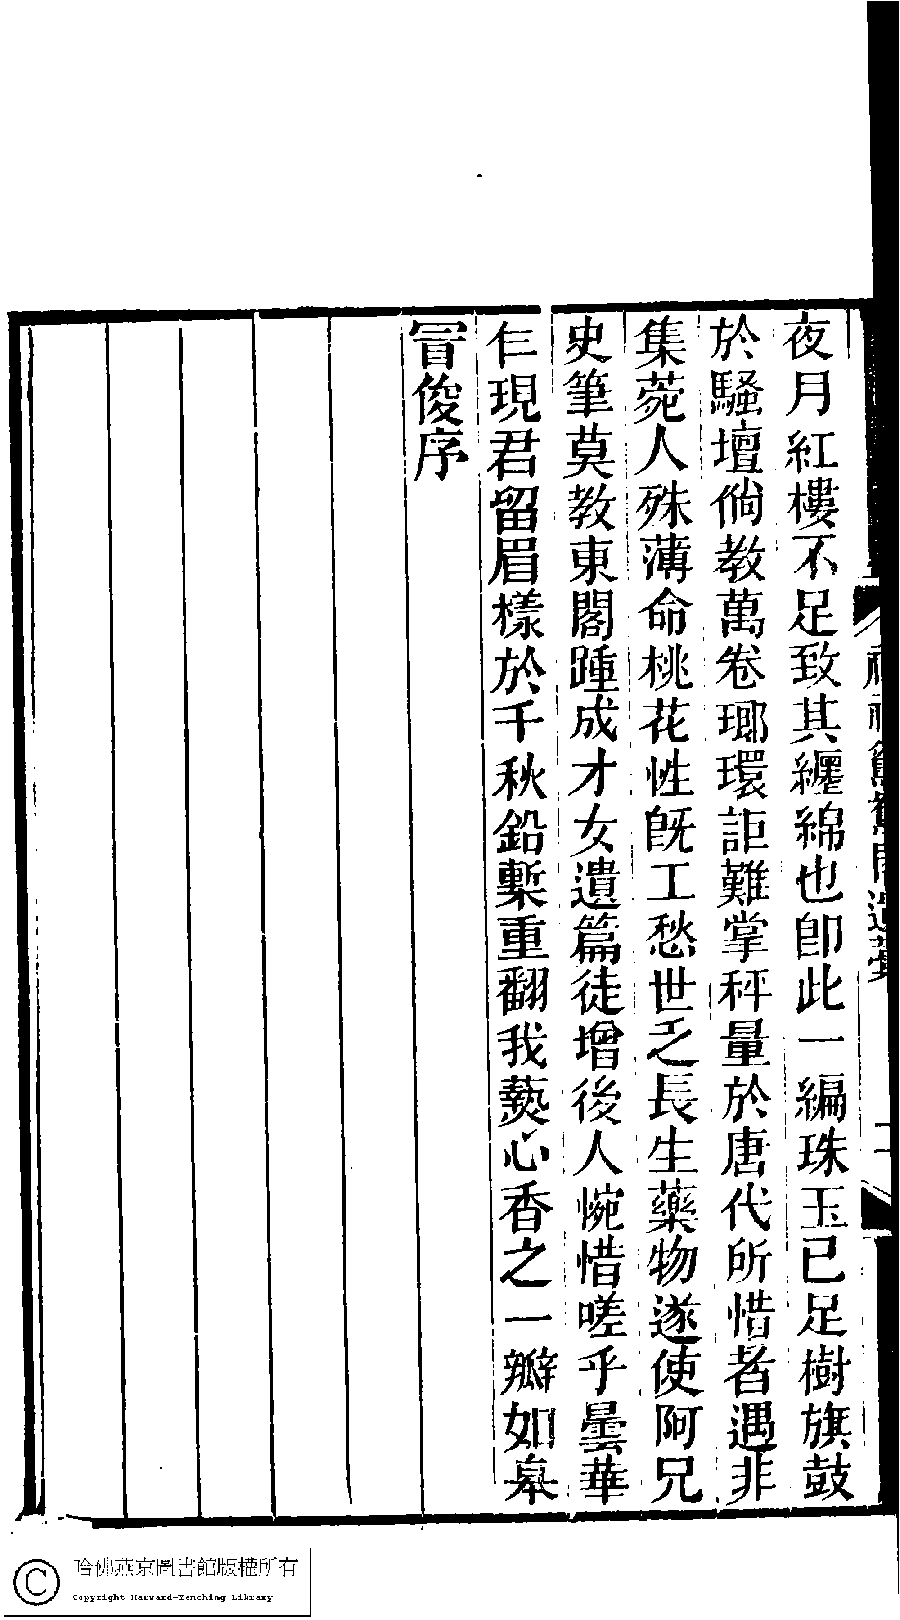 夜月紅樓不足致其纏綿也卽此一編珠玉已足樹旗鼓
於騷壇倘教萬卷瑯環詎難掌秤量於唐代所惜者遇非
集菀人殊薄命桃花性旣工愁世乏長生藥物遂使阿兄
史筆莫教東閣踵成才女遺篇徒增後人惋惜嗟乎曇華
仨現君留眉樣於千秋鉛槧重翻我爇心香之一瓣如皋
冒俊序
鴛鴦閣遺藁
二
哈佛燕京圖書館版權所有
Copyright Harvard-Yenching Library